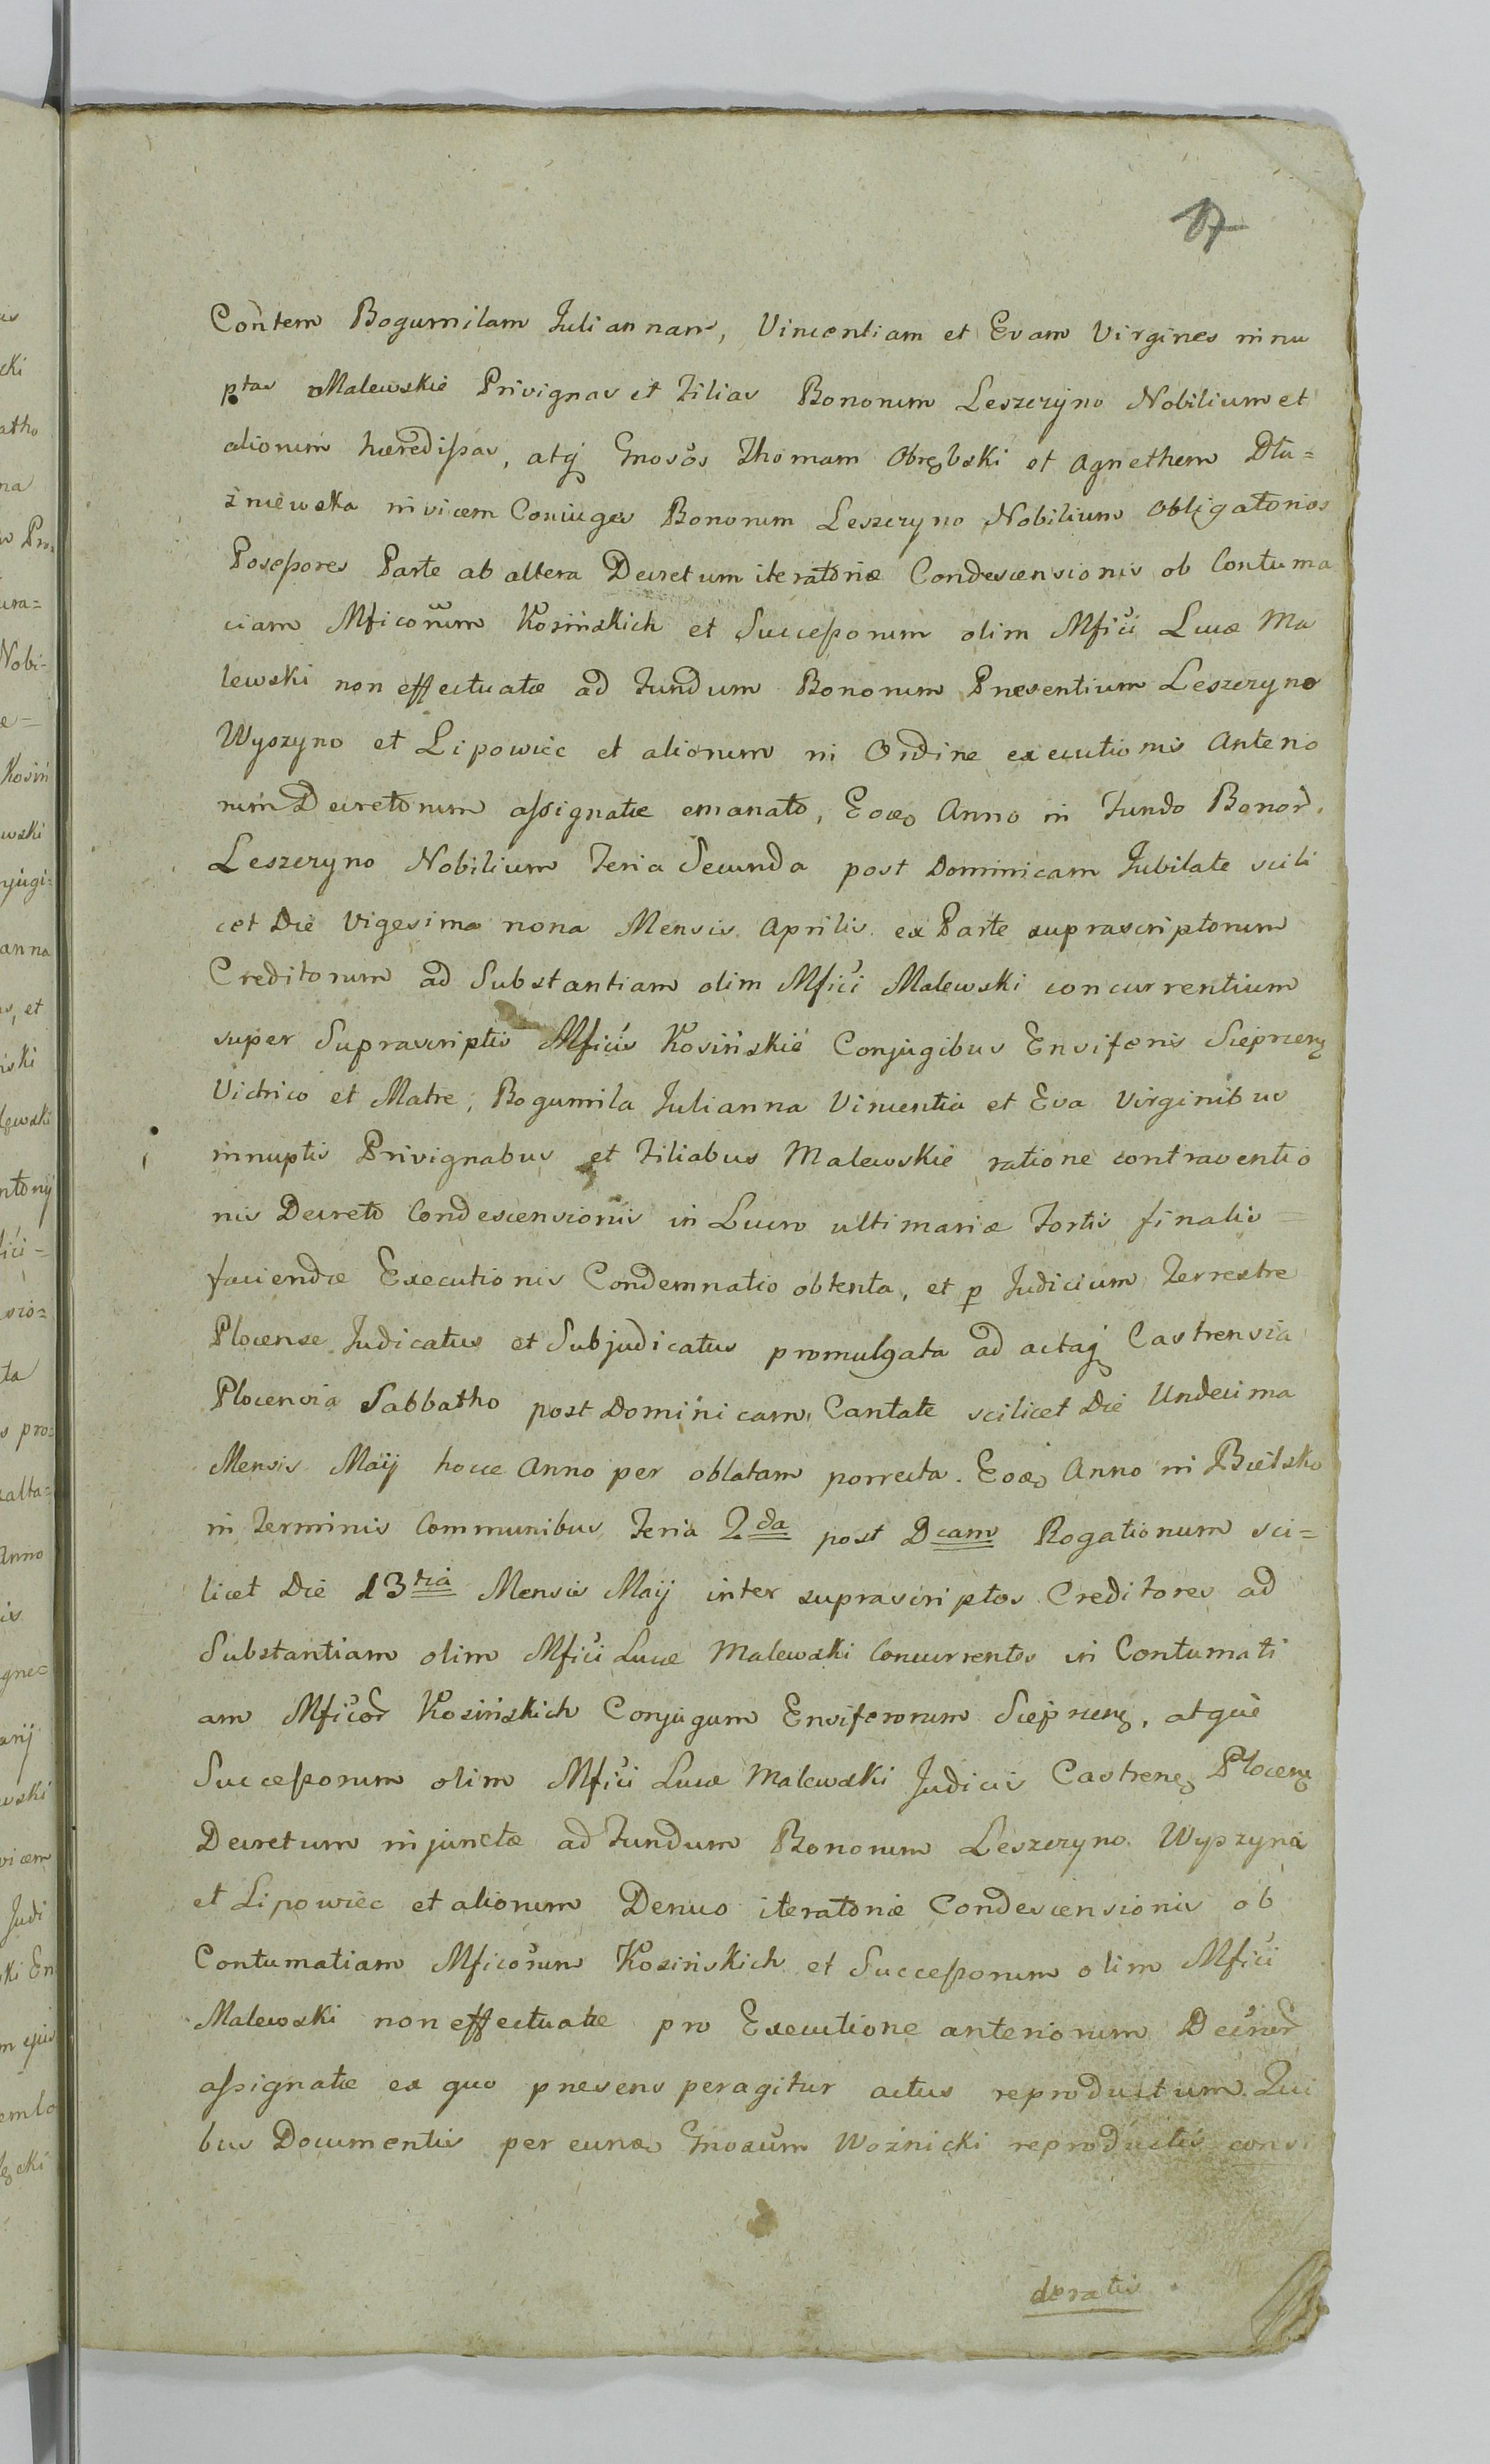 17
Contem Bogumilam Juliannam, Vincentiam et Evam Virgines innu
ptas Malewskie Privignas et Filias Bonorum Leszczyno Nobilium et
aliorum hæredissas, atq Gnosos Thomam Obrębski et Agnethem Dłu=
żniewska invicem Coniuges Bonorum Leszczyno Nobilium Obligatorios
Possessores Parte ab altera Decretum iteratoriæ Condescensionis ob Contuma
ciam Mficorum Kosińskich et Successorum olim Mfici Lucæ Ma
lewski non effectuatæ ad Fundum Bonorum Præsentium Leszczyno
Wyszyno et Lipowiec et aliorum in Ordine executionis Anterio
rum Decretorum assignatæ emanato, Eodem Anno in Fundo Bonor.
Leszczyno Nobilium Feria Secunda post Dominicam Jubilate scili
cet Die Vigesima nona Mensis Aprilis ex Parte suprascriptorum
Creditorum ad Substantiam olim Mfici Malewski concurrentium
super Suprascriptis Mficis Kosińskie Conjugibus Ensiferis Sieprcen
Victrico et Matre, Bogumila Julianna Vincentia et Eva Virginibus
innuptis Privignabus et Filiabus Malewskie ratione contraventio
nis Decreto Condescensionis in Lucro ultimariæ Fortis finalis =
faciendæ Executionis Condemnatio obtenta, et p Judicium Terrestre
Plocense Judicatus et Subjudicatus promulgata ad actaq Castrensia
Plocensia Sabbatho post Dominicam Cantate scilicet Die Undecima
Mensis Maij hocce Anno per oblatam porrecta. Eodem Anno in Bielsko
in Terminis Communibus Feria 2da post Dcam Rogationum sci=
licet Die 13tia Mensis Maij inter suprascriptos Creditores ad
Substantiam olim Mfici Lucæ Malewski Concurrentes in Contumati
am Mficor Kosińskich Conjugum Ensiferorum Sieprcen, atque
Successorum olim Mfici Lucæ Malewski Judicis Castrens Plocens
Decretum injunctæ ad Fundum Bonorum Leszczyno Wyszyna
et Lipowiec et aliorum Denuo iteratoriæ Condescensionis ob
Contumatiam Mficorum Kosińskich et Successorum olim Mfici
Malewski non effectuatæ pro Executione anteriorum Decretor
assignatæ ex quo præsens peragitur actus reproductum. Qui
bus Documentis per eund Gnosum Woźnicki reproductis consi
deratis